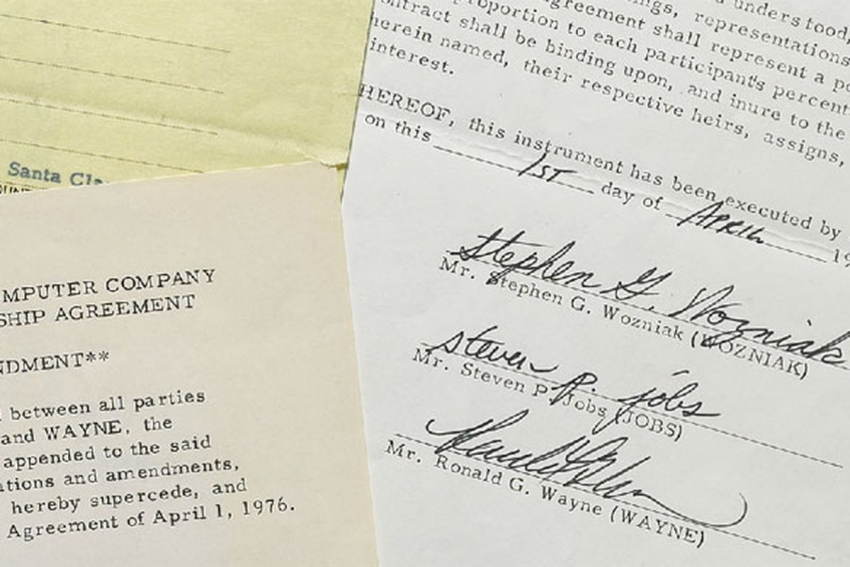 Santa Cla
MPUTER COMPANY
SHIP AGREEMENT
NDMENT**
between all parties
and WAYNE, the
appended to the said
ations and amendments,
hereby supercede, and
Agreement of April 1, 1976.
understood,
ngs, representations
agreement shall represent a
oportion to each participant's percent
ontract shall be binding upon, and inure to the
herein named, their respective heirs, assigns,
interest.
HEREOF, this instrument has been executed by
on this 1ST day of APRIL 19
Stephen G. Wozniak
Mr. Stephen G. Wozniak (WOZNIAK)
steven P. jobs
Mr. Steven P. Jobs (JOBS)
Mr. Ronald G. Wayne (WAYNE)